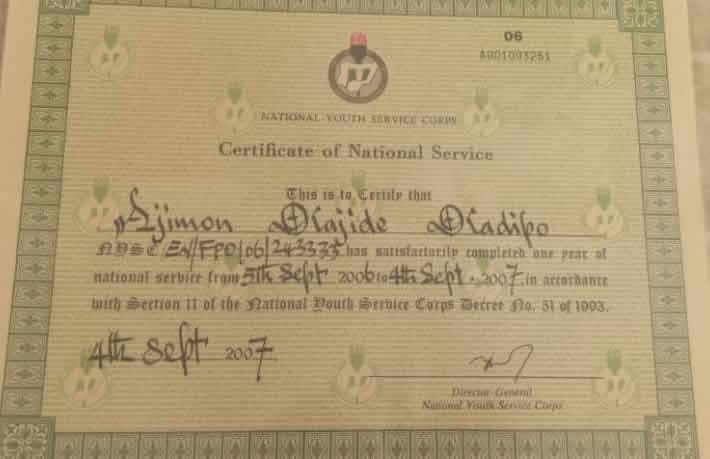 06
A901093251
NATIONAL YOUTH SERVICE CORPS
Certificate of National Service
This is to Certify that
Ajimon Olajide Oladipo
NYSC EN/FPO/06/243335 has satisfactorily completed one year of
national service from 5th Sept 2006 to 4th Sept. 2007. in accordance
with Section 11 of the National Youth Service Corps Decree No. 51 of 1993.
4th Sept 2007.
Director-General
National Youth Service Corps